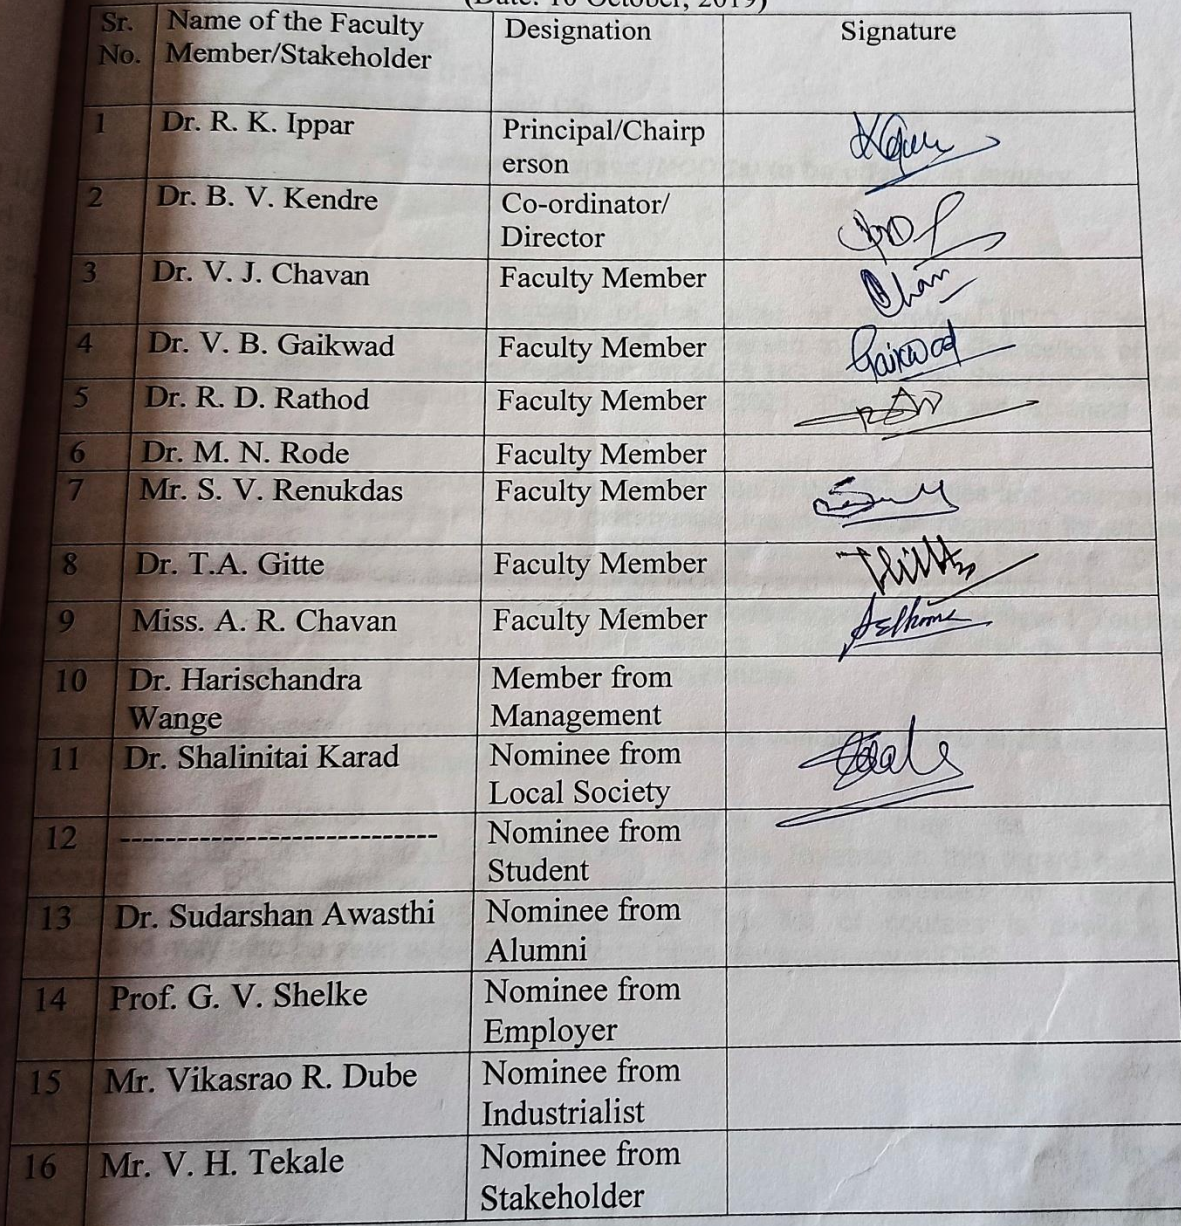 (Date: 10 October, 2019)
Sr. No. Name of the Faculty Member/Stakeholder Designation Signature
1 Dr. R. K. Ippar Principal/Chairp
erson
2 Dr. B. V. Kendre Co-ordinator/
Director
3 Dr. V. J. Chavan Faculty Member
4 Dr. V. B. Gaikwad Faculty Member Gaikwad
5 Dr. R. D. Rathod Faculty Member
6 Dr. M. N. Rode Faculty Member
7 Mr. S. V. Renukdas Faculty Member
8 Dr. T.A. Gitte Faculty Member
9 Miss. A. R. Chavan Faculty Member
10 Dr. Harischandra Member from
Wange Management
11 Dr. Shalinitai Karad Nominee from
Local Society
12 --------------------------- Nominee from
Student
13 Dr. Sudarshan Awasthi Nominee from
Alumni
14 Prof. G. V. Shelke Nominee from
Employer
15 Mr. Vikasrao R. Dube Nominee from
Industrialist
16 Mr. V. H. Tekale Nominee from
Stakeholder